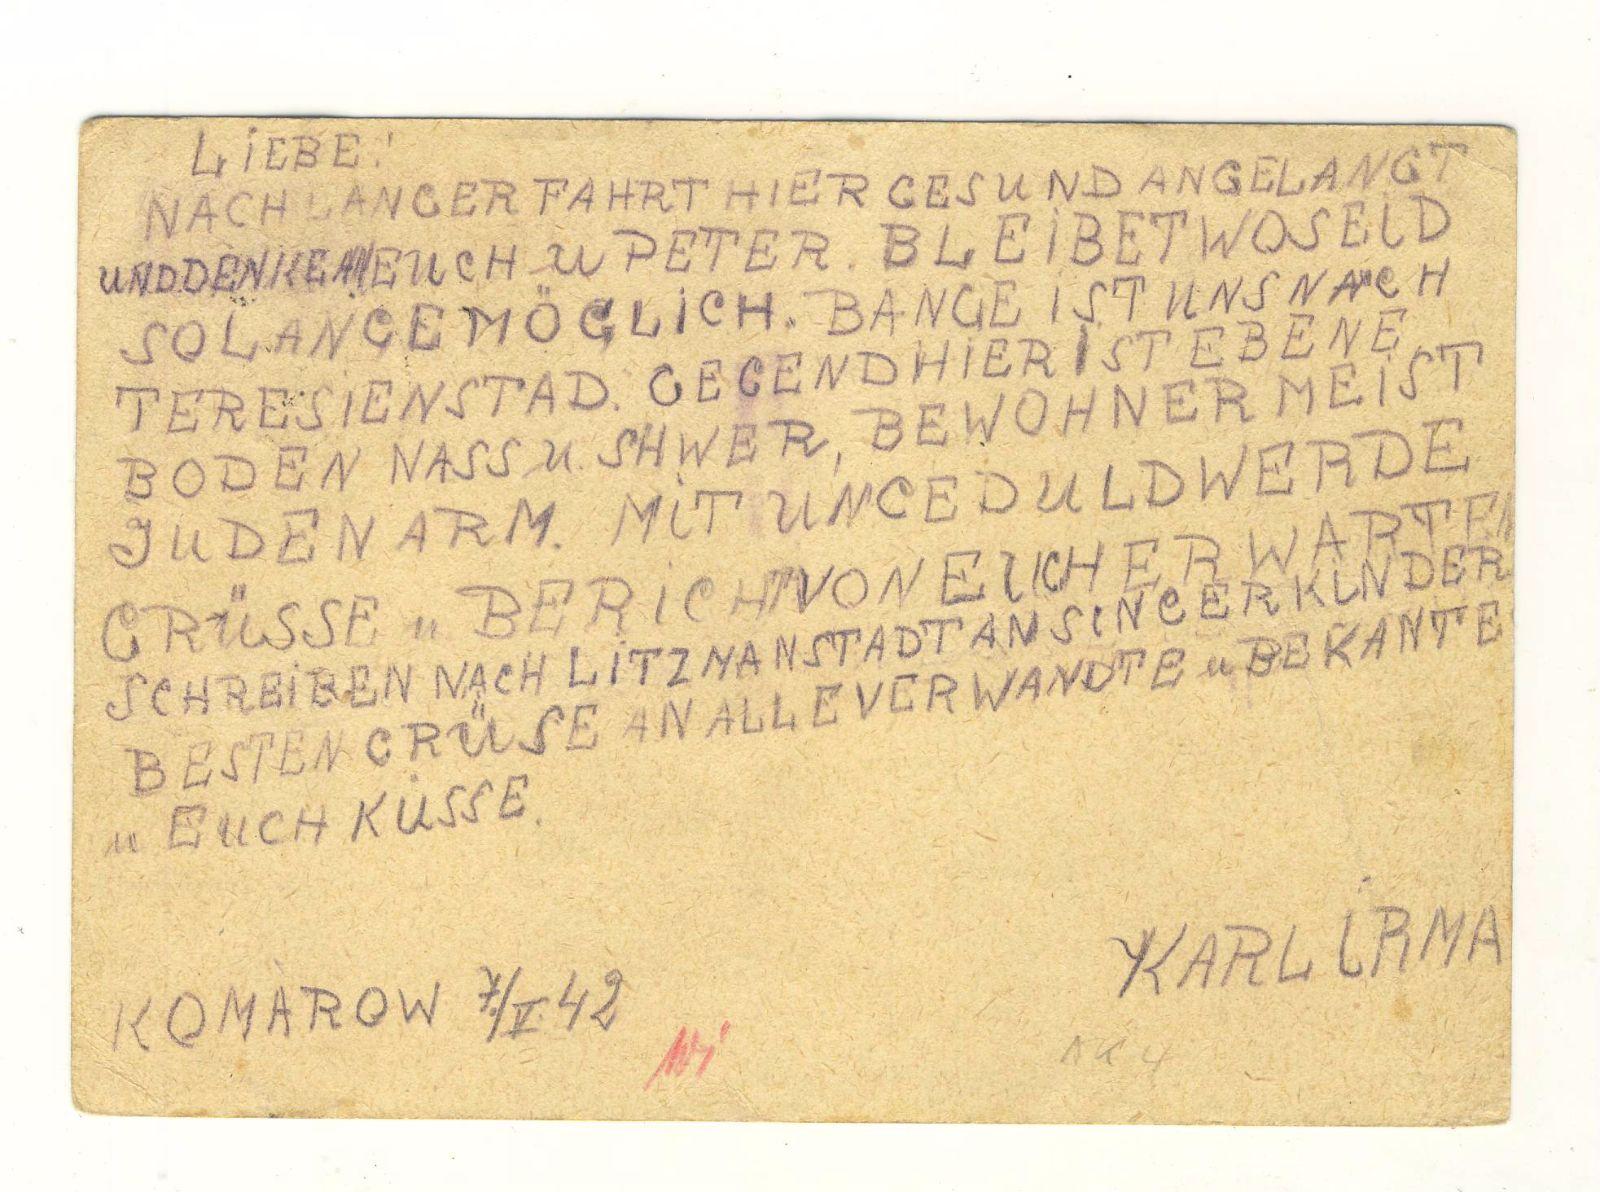 LIEBE!
NACH LANGER FAHRT HIER GESUND ANGELANGT
UND DENKE AN EUCH u PETER. BLEIBET WO SEID
SOLANGE MÖGLICH. BANGE IST UNS NACH
TERESIENSTAD. GEGEND HIER IST EBENE
BODEN NASS u. SHWER, BEWOHNER MEIST
JUDEN ARM. MIT UNGEDULD WERDE
GRÜSSE u BERICHT VON EUCH ERWARTEN
SCHREIBEN NACH LITZMANSTADT AN SINGER KINDER
BESTEN GRÜSE AN ALLE VERWANDTE u BEKANTE
u EUCH KÜSSE.
KARL IRMA
KOMAROW 7/V. 42